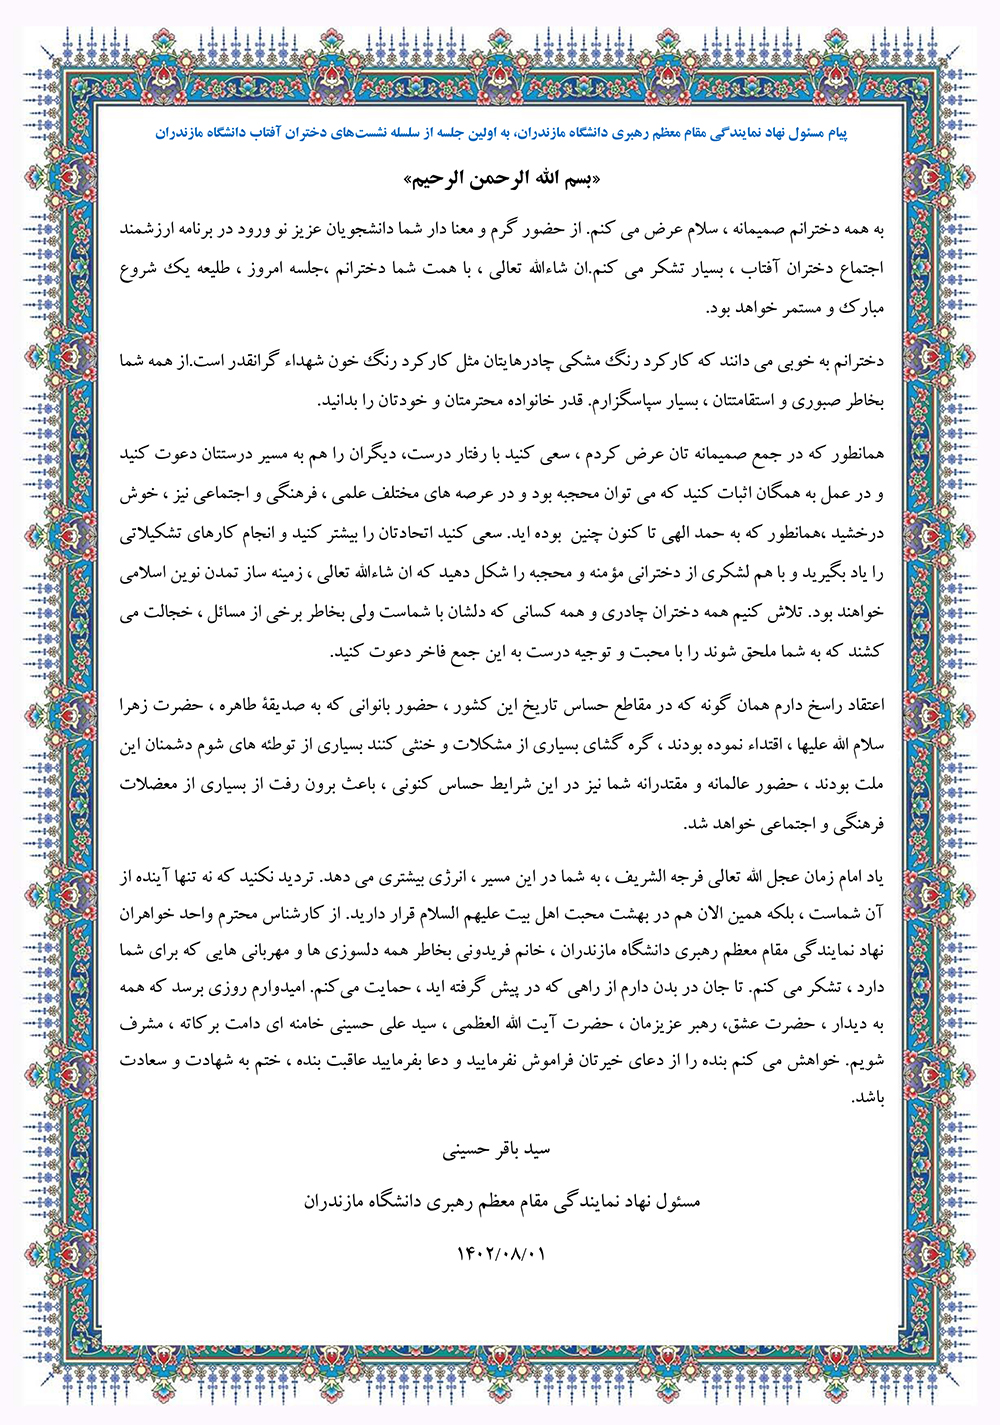 پیام مسئول نهاد نمایندگی مقام معظم رهبری دانشگاه مازندران، به اولین جلسه از سلسله نشست‌های دختران آفتاب دانشگاه مازندران
«بسم الله الرحمن الرحیم»
به همه دخترانم صمیمانه ، سلام عرض می کنم. از حضور گرم و معنا دار شما دانشجویان عزیز نو ورود در برنامه ارزشمند
اجتماع دختران آفتاب ، بسیار تشکر می کنم.ان شاءالله تعالی ، با همت شما دخترانم ،جلسه امروز ، طلیعه یک شروع
مبارک و مستمر خواهد بود.
دخترانم به خوبی می دانند که کارکرد رنگ مشکی چادرهایتان مثل کارکرد رنگ خون شهداء گرانقدر است.از همه شما
بخاطر صبوری و استقامتتان ، بسیار سپاسگزارم. قدر خانواده محترمتان و خودتان را بدانید.
همانطور که در جمع صمیمانه تان عرض کردم ، سعی کنید با رفتار درست، دیگران را هم به مسیر درستتان دعوت کنید
و در عمل به همگان اثبات کنید که می توان محجبه بود و در عرصه های مختلف علمی ، فرهنگی و اجتماعی نیز ، خوش
درخشید ،همانطور که به حمد الهی تا کنون چنین بوده اید. سعی کنید اتحادتان را بیشتر کنید و انجام کارهای تشکیلاتی
را یاد بگیرید و با هم لشکری از دخترانی مؤمنه و محجبه را شکل دهید که ان شاءالله تعالی ، زمینه ساز تمدن نوین اسلامی
خواهند بود. تلاش کنیم همه دختران چادری و همه کسانی که دلشان با شماست ولی بخاطر برخی از مسائل ، خجالت می
کشند که به شما ملحق شوند را با محبت و توجیه درست به این جمع فاخر دعوت کنید.
اعتقاد راسخ دارم همان گونه که در مقاطع حساس تاریخ این کشور ، حضور بانوانی که به صدیقۀ طاهره ، حضرت زهرا
سلام الله علیها ، اقتداء نموده بودند ، گره گشای بسیاری از مشکلات و خنثی کنند بسیاری از توطئه های شوم دشمنان این
ملت بودند ، حضور عالمانه و مقتدرانه شما نیز در این شرایط حساس کنونی ، باعث برون رفت از بسیاری از معضلات
فرهنگی و اجتماعی خواهد شد.
یاد امام زمان عجل الله تعالی فرجه الشریف ، به شما در این مسیر ، انرژی بیشتری می دهد. تردید نکنید که نه تنها آینده از
آن شماست ، بلکه همین الان هم در بهشت محبت اهل بیت علیهم السلام قرار دارید. از کارشناس محترم واحد خواهران
نهاد نمایندگی مقام معظم رهبری دانشگاه مازندران ، خانم فریدونی بخاطر همه دلسوزی ها و مهربانی هایی که برای شما
دارد ، تشکر می کنم. تا جان در بدن دارم از راهی که در پیش گرفته اید ، حمایت می‌کنم. امیدوارم روزی برسد که همه
به دیدار ، حضرت عشق، رهبر عزیزمان ، حضرت آیت الله العظمی ، سید علی حسینی خامنه ای دامت برکاته ، مشرف
شویم. خواهش می کنم بنده را از دعای خیرتان فراموش نفرمایید و دعا بفرمایید عاقبت بنده ، ختم به شهادت و سعادت
باشد.
سید باقر حسینی
مسئول نهاد نمایندگی مقام معظم رهبری دانشگاه مازندران
۱۴۰۲/۰۸/۰۱